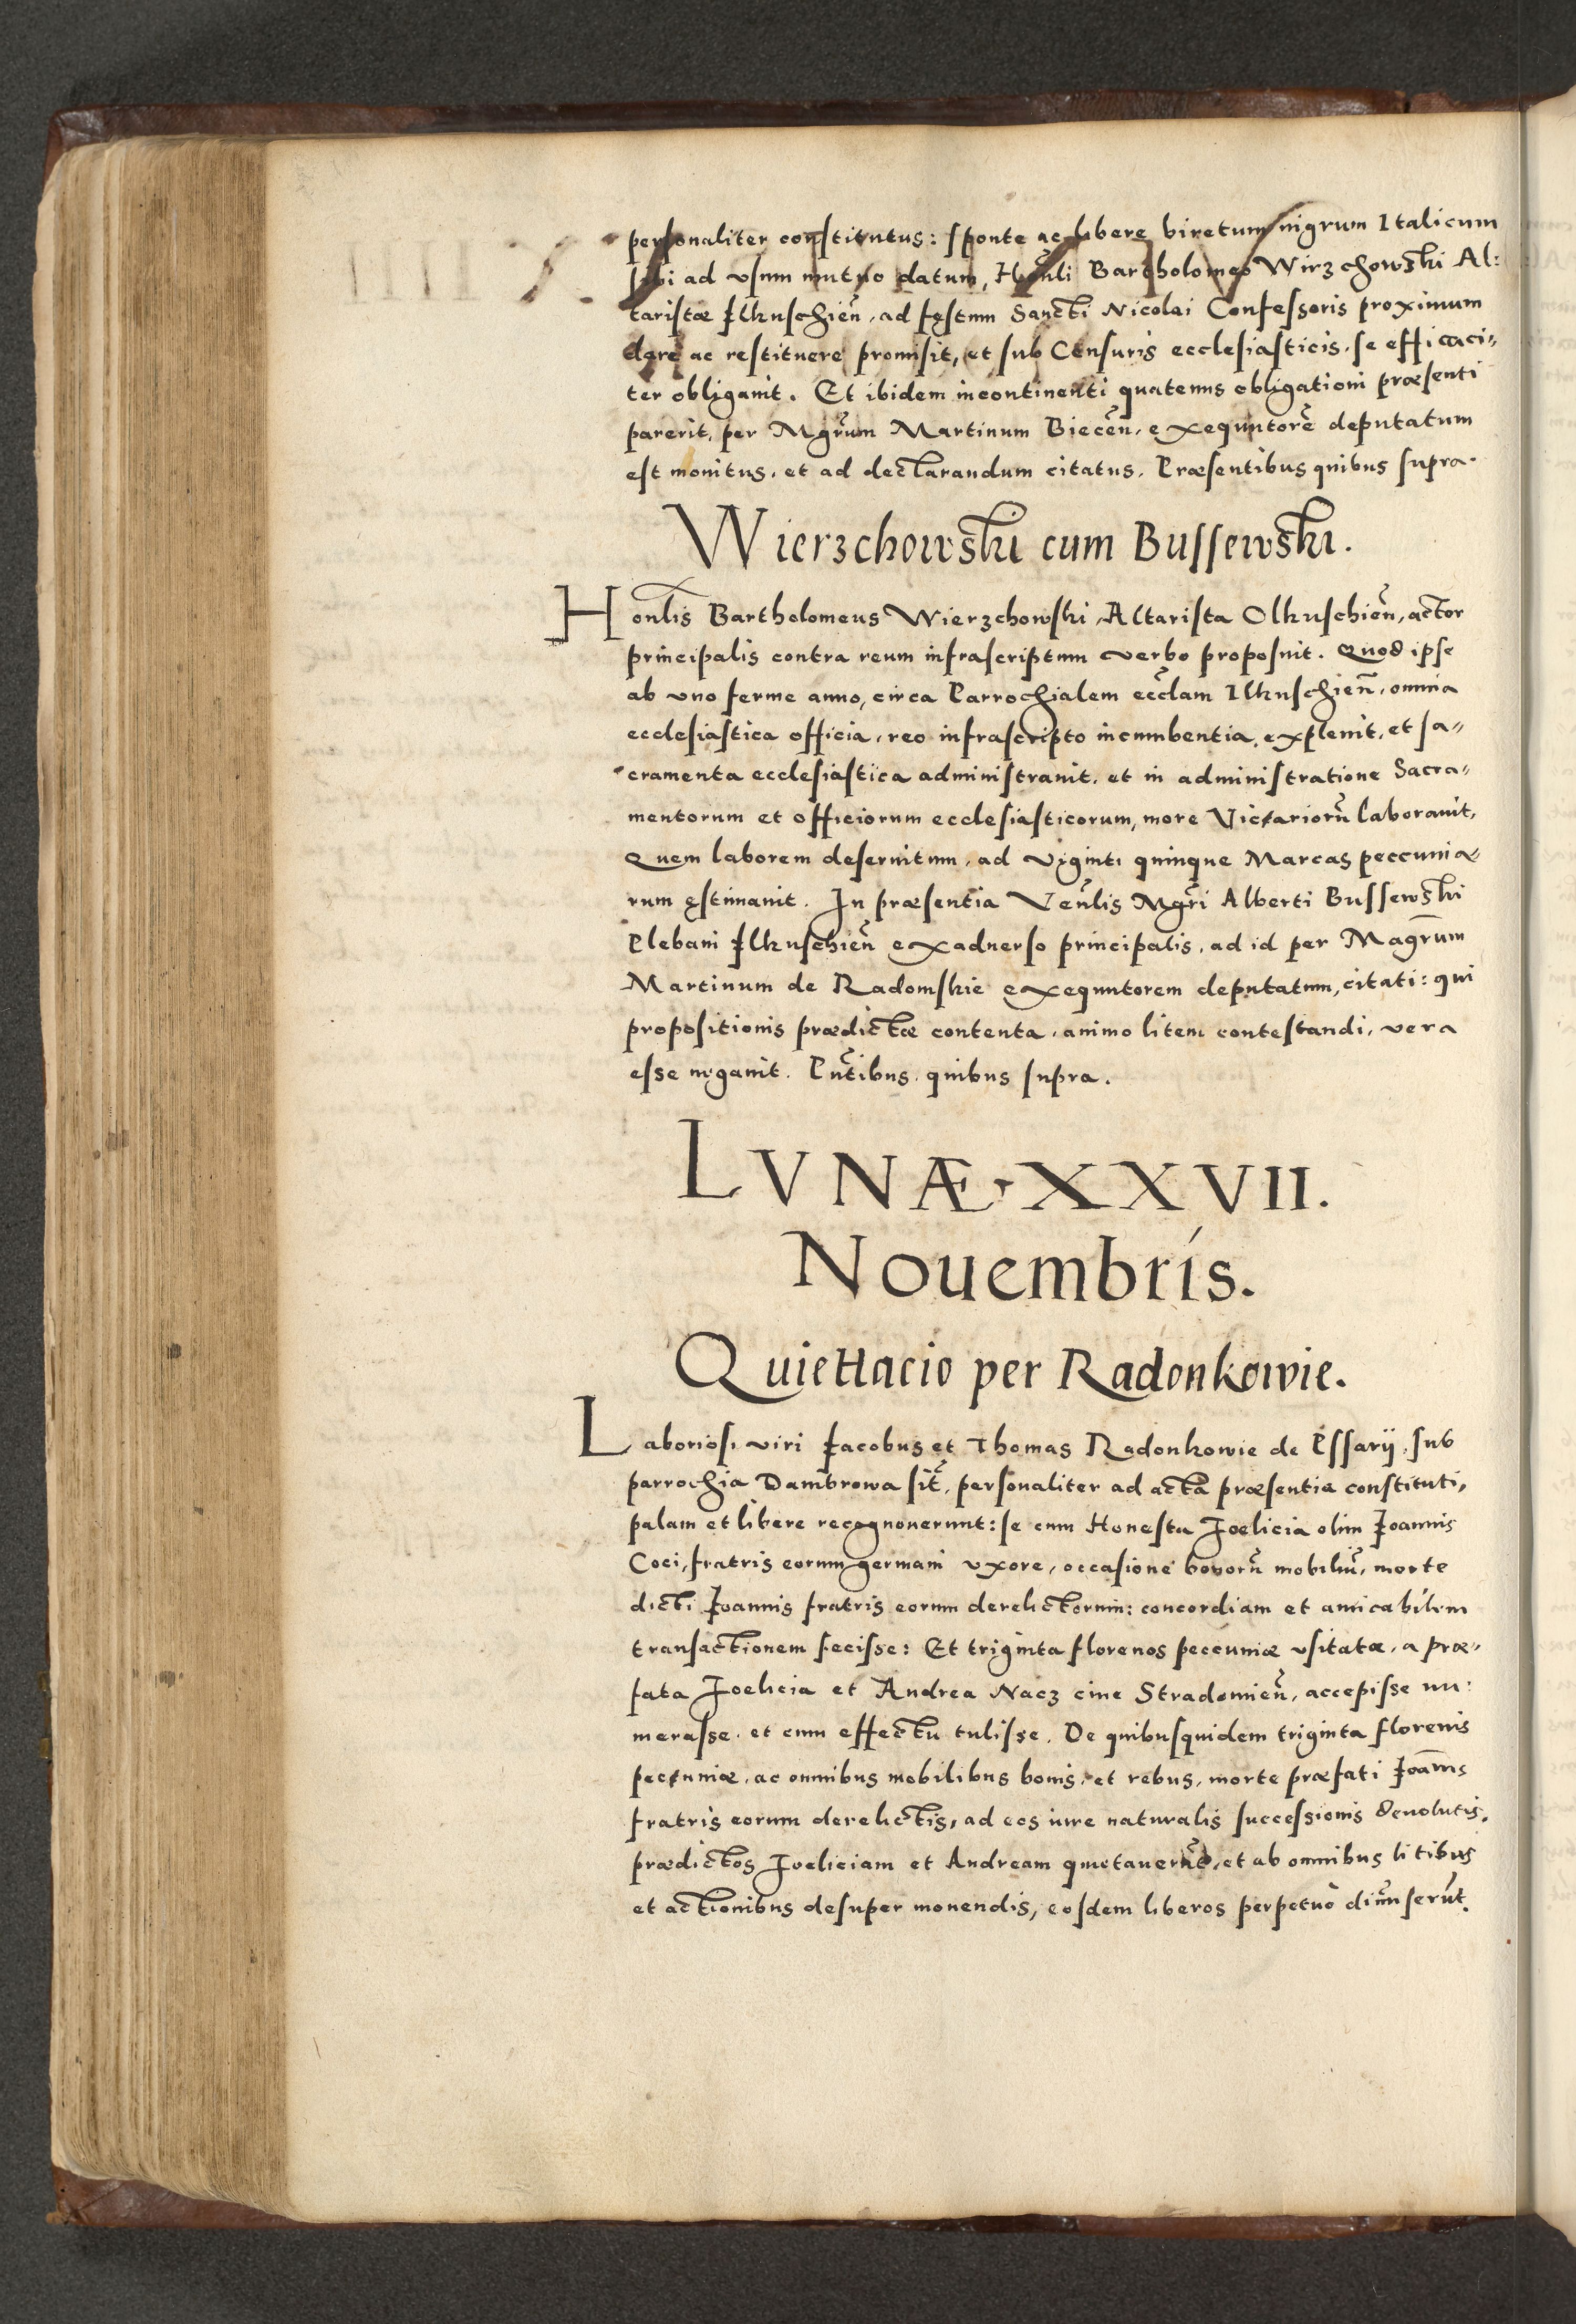 personaliter constitutus: sponte ac libere biretum nigrum Italicum
sibi ad vsum mutuo datum, Honli Bartholomeo Wirzchowski Al:
taristæ Ilkuschien̄, ad fęstum Sancti Nicolai Confessoris proximum
dare ac restituere promisit, et sub Censuris ecclesiasticis, se efficaci„
ter obligauit. Et ibidem incontinenti quatenus obligationi præsenti
parerit, per Mgrum Martinum Biecen̄, exequutorē deputatum
est monitus, et ad declarandum citatus. Præsentibus quibus supra.
Wierzchowski cum Bussewski.
Honlis Bartholomeus Wierzchowski, Altarista Olkuschien̄, actor
principalis contra reum infrascriptum verbo proposuit. Quod ipse
ab vno ferme anno, circa Parrochialem eccłam Ilkuschien̄, omnia
ecclesiastica officia, reo infrascripto incumbentia, expleuit, et sa„
cramenta ecclesiastica administrauit, et in administratione Sacra„
mentorum et officiorum ecclesiasticorum, more Vicariorū laborauit,
Quem laborem deseruitum, ad viginti quinque Marcas peccunia
rum ęstimauit. In præsentia Veñlis Mgri Alberti Bussewski
Plebani Ilkuschien̄ exaduerso principalis, ad id per Magrum
Martinum de Radomskie exequutorem deputatum, citati: qui
propositionis prædictæ contenta, animo litem contestandi, vera
esse negauit. Pn̄tibus quibus supra.
LVNÆ XXVII.
Nouembris.
Quiettacio per Radonkowie.
Laboriosi viri Jacobus et Thomas Radonkowie de Pssarÿ, sub
parrochia Dambrowa sit̄, personaliter ad acta præsentia constituti,
palam et libere recognouerunt: se cum Honesta Joelicia olim Joannis
Coci, fratris eorum germani vxore, occasione bonorū mobiliū, morte
dicti Joannis fratris eorum derelictorum: concordiam et amicabilem
transactionem fecisse: Et triginta florenos peccuniæ vsitatæ, a præ„
fata Joelicia et Andrea Nacz ciue Stradomien̄, accepisse nu:
merasse, et cum effectu tulisse. De quibusquidem triginta florenis
pecuniæ, ac omnibus mobilibus bonis, et rebus, morte præfati Joan̄is
fratris eorum derelictis, ad eos iure naturalis successionis deuolutis,
prædictos Joeliciam et Andream quietauerūt, et ab omnibus litibus
et actionibus desuper mouendis, eosdem liberos perpetuo dimiserūt.